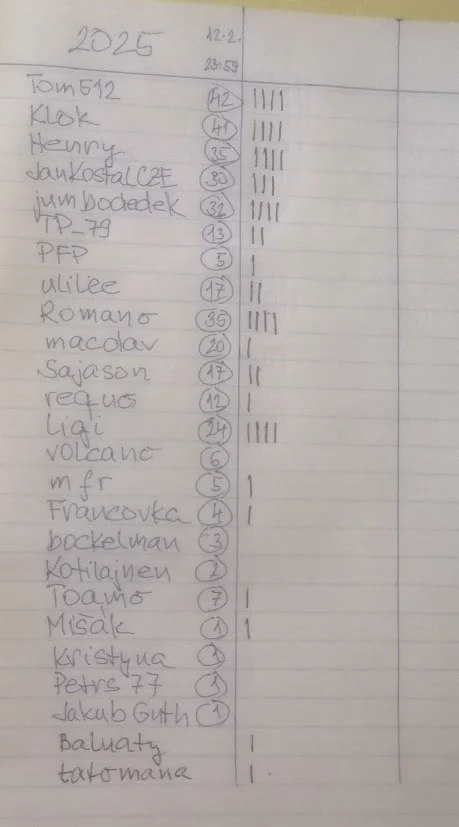 2025 12.2.
23:59
Tom512 42 ||||
Klok 41 ||||
Henry 35 ||||
JanKostalCZE 30 |||
jumbodedek 32 ||||
TP_79 13 ||
PFP 5 |
ulilee 17 ||
Romano 35 ||||
macdav 20 |
Sajason 17 ||
requo 12 |
Ligi 24 ||||
volcano 6
mfr 5 |
Francovka 4 |
bockelman 3
Kotilajnen 2
Toajmo 7 |
Mišák 1 |
Kristyna 1
Petrs77 1
Jakub Guth 1
Baluaty |
tatomana |